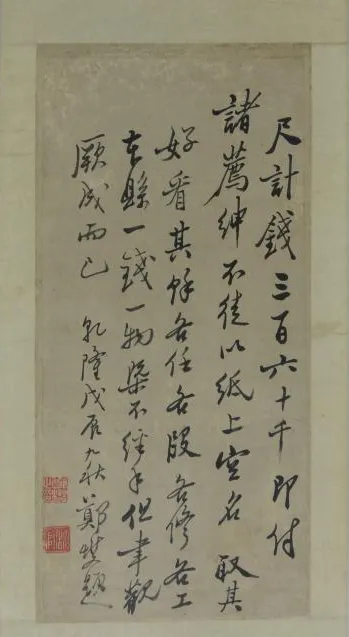 尺計錢三百六十千即付
諸薦紳不徒以紙上空名取其
好看其餘各任各段各修各工
本縣一錢一物槩不經手但聿觀
厥成而已 乾隆戊辰九秋鄭燮題